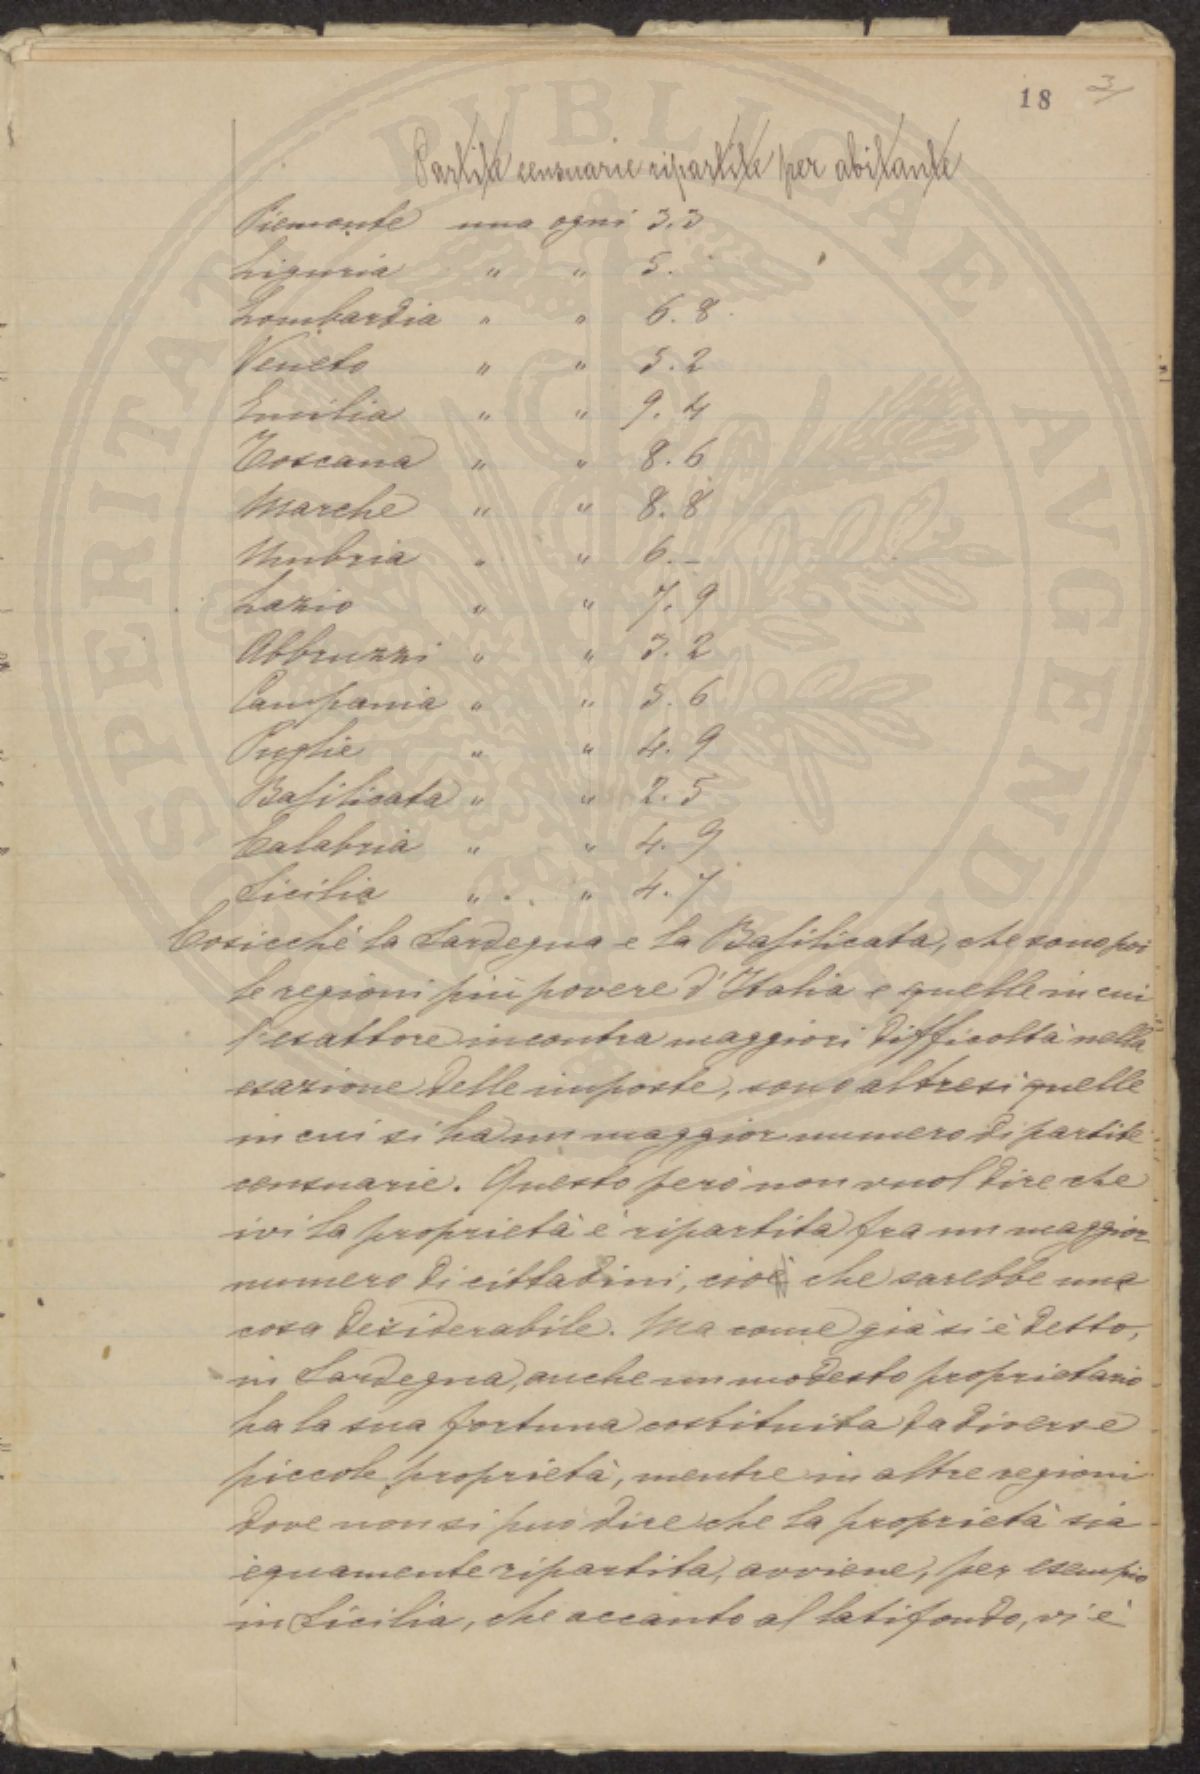 18 3/
Partite censuarie ripartite per abitante
Piemonte una ogni 3.3
Liguria " " 5.
Lombardia " " 6.8
Veneto " " 5.2
Emilia " " 9.4
Toscana " " 8.6
Marche " " 8.8
Umbria " " 6.—
Lazio " " 7.9
Abbruzzi " " 3.2
Campania " " 5.6
Puglie " " 4.9
Basilicata " " 2.5
Calabria " " 4.9
Sicilia " " 4.7
Cosicché la Sardegna e la Basilicata, che sono poi
le regioni più povere d'Italia e quelle in cui
l'esattore incontra maggiori difficoltà nella
esazione delle imposte, sono altresì quelle
in cui si ha un maggior numero di partite
censuarie. Questo però non vuol dire che
ivi la proprietà è ripartita fra un maggior
numero di cittadini, ciò che sarebbe una
cosa desiderabile. Ma come già si è detto,
in Sardegna, anche un modesto proprietario
ha la sua fortuna costituita da diverse
piccole proprietà, mentre in altre regioni
dove non si può dire che la proprietà sia
equamente ripartita, avviene, per esempio
in Sicilia, che accanto al latifondo, vi è
SPERITAT PVBLICAE AVGENDAE